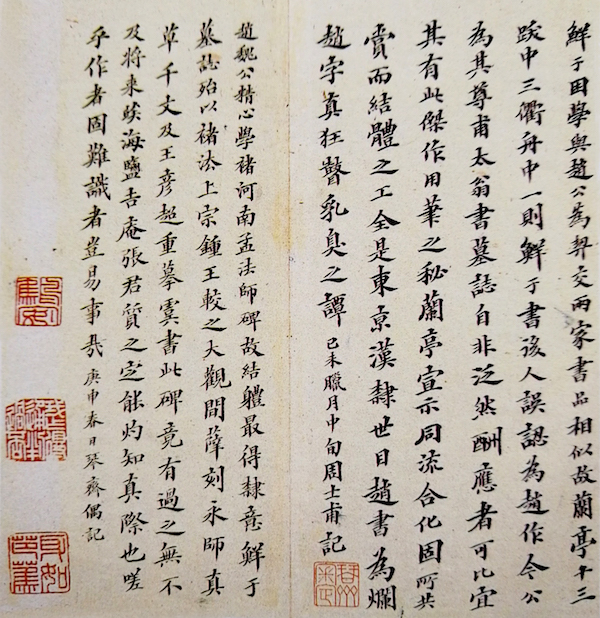 鮮于困學與趙公為契交兩家書品相似故蘭亭十三
跋中三衢舟中一則鮮于書該人誤認為趙作今公
為其尊甫太翁書墓誌自非泛然酬應者可比宜
其有此傑作用筆之秘蘭亭宣示同流合化固所共
賞而結體之工全是東京漢隸世目趙書為爛
趙字真狂瞽乳臭之譚 己未臘月中旬周士甫記
趙魏公精心學褚河南孟法師碑故結軆最得隸意鮮于
墓誌殆以褚法上宗鍾王較之大觀間薛刻永師真
草千文及王彥超重摹虞書此碑竟有過之無不
及将来海鹽庵張君質之定能灼知真際也嗟
乎作者固難識者豈易事哉 庚申春日琴齋偶記